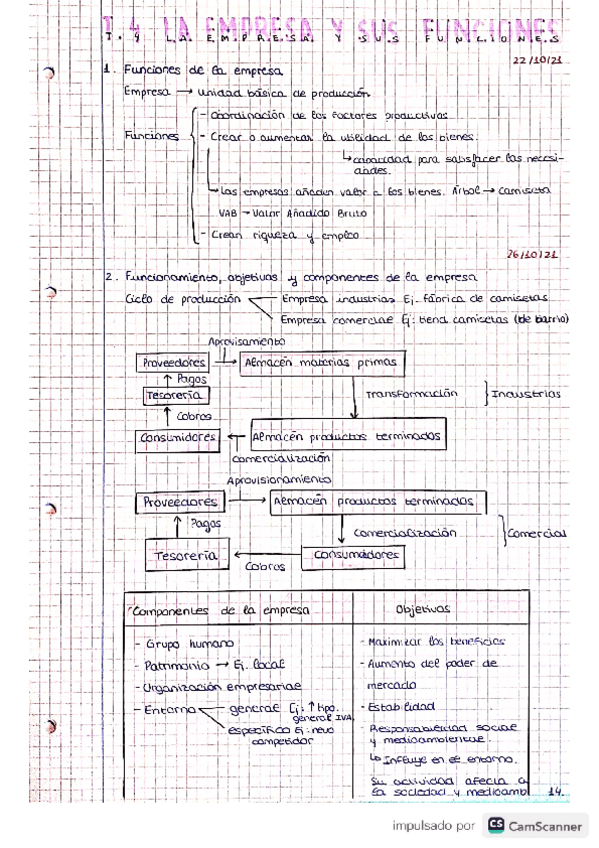 T.4 LA EMPRESA Y SUS FUNCIONES
22/10/21
1. Funciones de la empresa
Empresa → unidad básica de producción
Funciones
- Coordinación de los factores productivos
- Crear o aumentar la utilidad de los bienes.
↳ capacidad para satisfacer las necesi-
dades.
↳ Las empresas añaden valor a los bienes. Árbol → camiseta
VAB → Valor Añadido Bruto
- Crean riqueza y empleo
26/10/21
2. Funcionamiento, objetivos y componentes de la empresa
Ciclo de producción
Empresa industrias Ej. fábrica de camisetas
Empresa comercial Ej: tiend camisetas (de barrio)
Aprovisamiento
Proveedores → Almacén materias primas
↑ Pagos
Tesorería
Transformación } Industrias
↑ Cobros
Consumidores ← Almacén productos terminados
Comercialización
Aprovisionamiento
Proveedores → Almacén productos terminados
↑ Pagos
Comercialización } Comercial
Tesorería ← Consumidores
Cobros
Componentes de la empresa
- Grupo humano
- Patrimonio → Ej. local
- Organización empresarial
- Entorno
general Ej: ↑ tipo.
general IVA.
específico Ej: nuevo
competidor
Objetivos
- Maximizar los beneficios
- Aumento del poder de
mercado
- Estabilidad
- Responsabilidad social
y medioambiental.
↳ Influye en el entorno.
Su actividad afecta a
la sociedad y medioambi
14.
impulsado por CS CamScanner